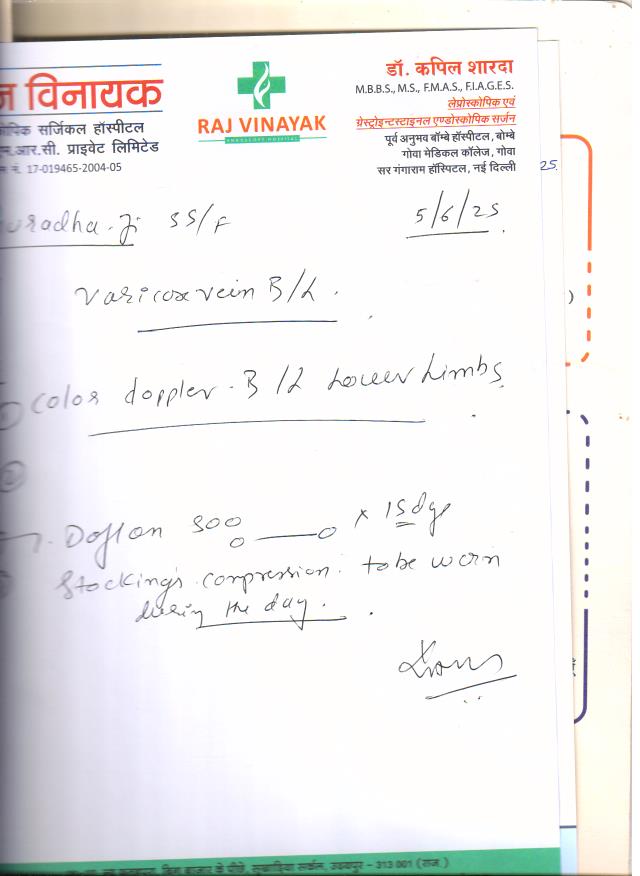 न विनायक
ोपिक सर्जिकल हॉस्पीटल
न.आर.सी. प्राइवेट लिमिटेड
नं. 17-019465-2004-05
RAJ VINAYAK
ENDOSCOPY HOSPITAL
डॉ. कपिल शारदा
M.B.B.S., M.S., F.M.A.S., F.I.A.G.E.S.
लेप्रोस्कोपिक एवं
गेस्ट्रोइन्टस्टाइनल एण्डोस्कोपिक सर्जन
पूर्व अनुभव बॉम्बे हॉस्पीटल, बोम्बे
गोवा मेडिकल कॉलेज, गोवा
सर गंगाराम हॉस्पिटल, नई दिल्ली
25
uradha. Ji 55/F
5/6/25
Varicose vein B/L.
① Color doppler - B/L Lower Limbs
②
T. Daflon 500 0—0 x 15 dys
Stocking's compression. to be worn
during the day.
के पीछे, सुखाड़िया सर्कल, उदयपुर - 313 001 (राज.)